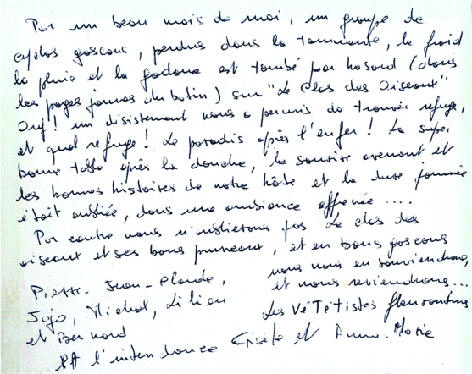 Par un beau mois de mai, un groupe de
cyclos gascons, perdus dans la tourmente, le froid
la pluie et la gadoue est tombé par hasard (dans
les pages jaunes du botin) sur "Le Clos des Oiseaux"
Ouf! un désistement nous a permis de trouver refuge
et quel refuge! Le paradis après l'enfer! La super
bonne table après la douche, le sourire avenant et
les bonnes histoires de notre hôte et la luse fournie
était oubliée, dans une ambiance ....
Par contre nous n'oublierons pas le clos des
oiseaux et ses bons pruneaux, et en bons gascons
nous nous en souviendrons,
et nous reviendrons...
Pierre, Jean-Claude,
Jojo, Michel, Lilian
et Bernard
Les VéTétistes fleurantins
et l'intendance Gisèle et Anne-Marie